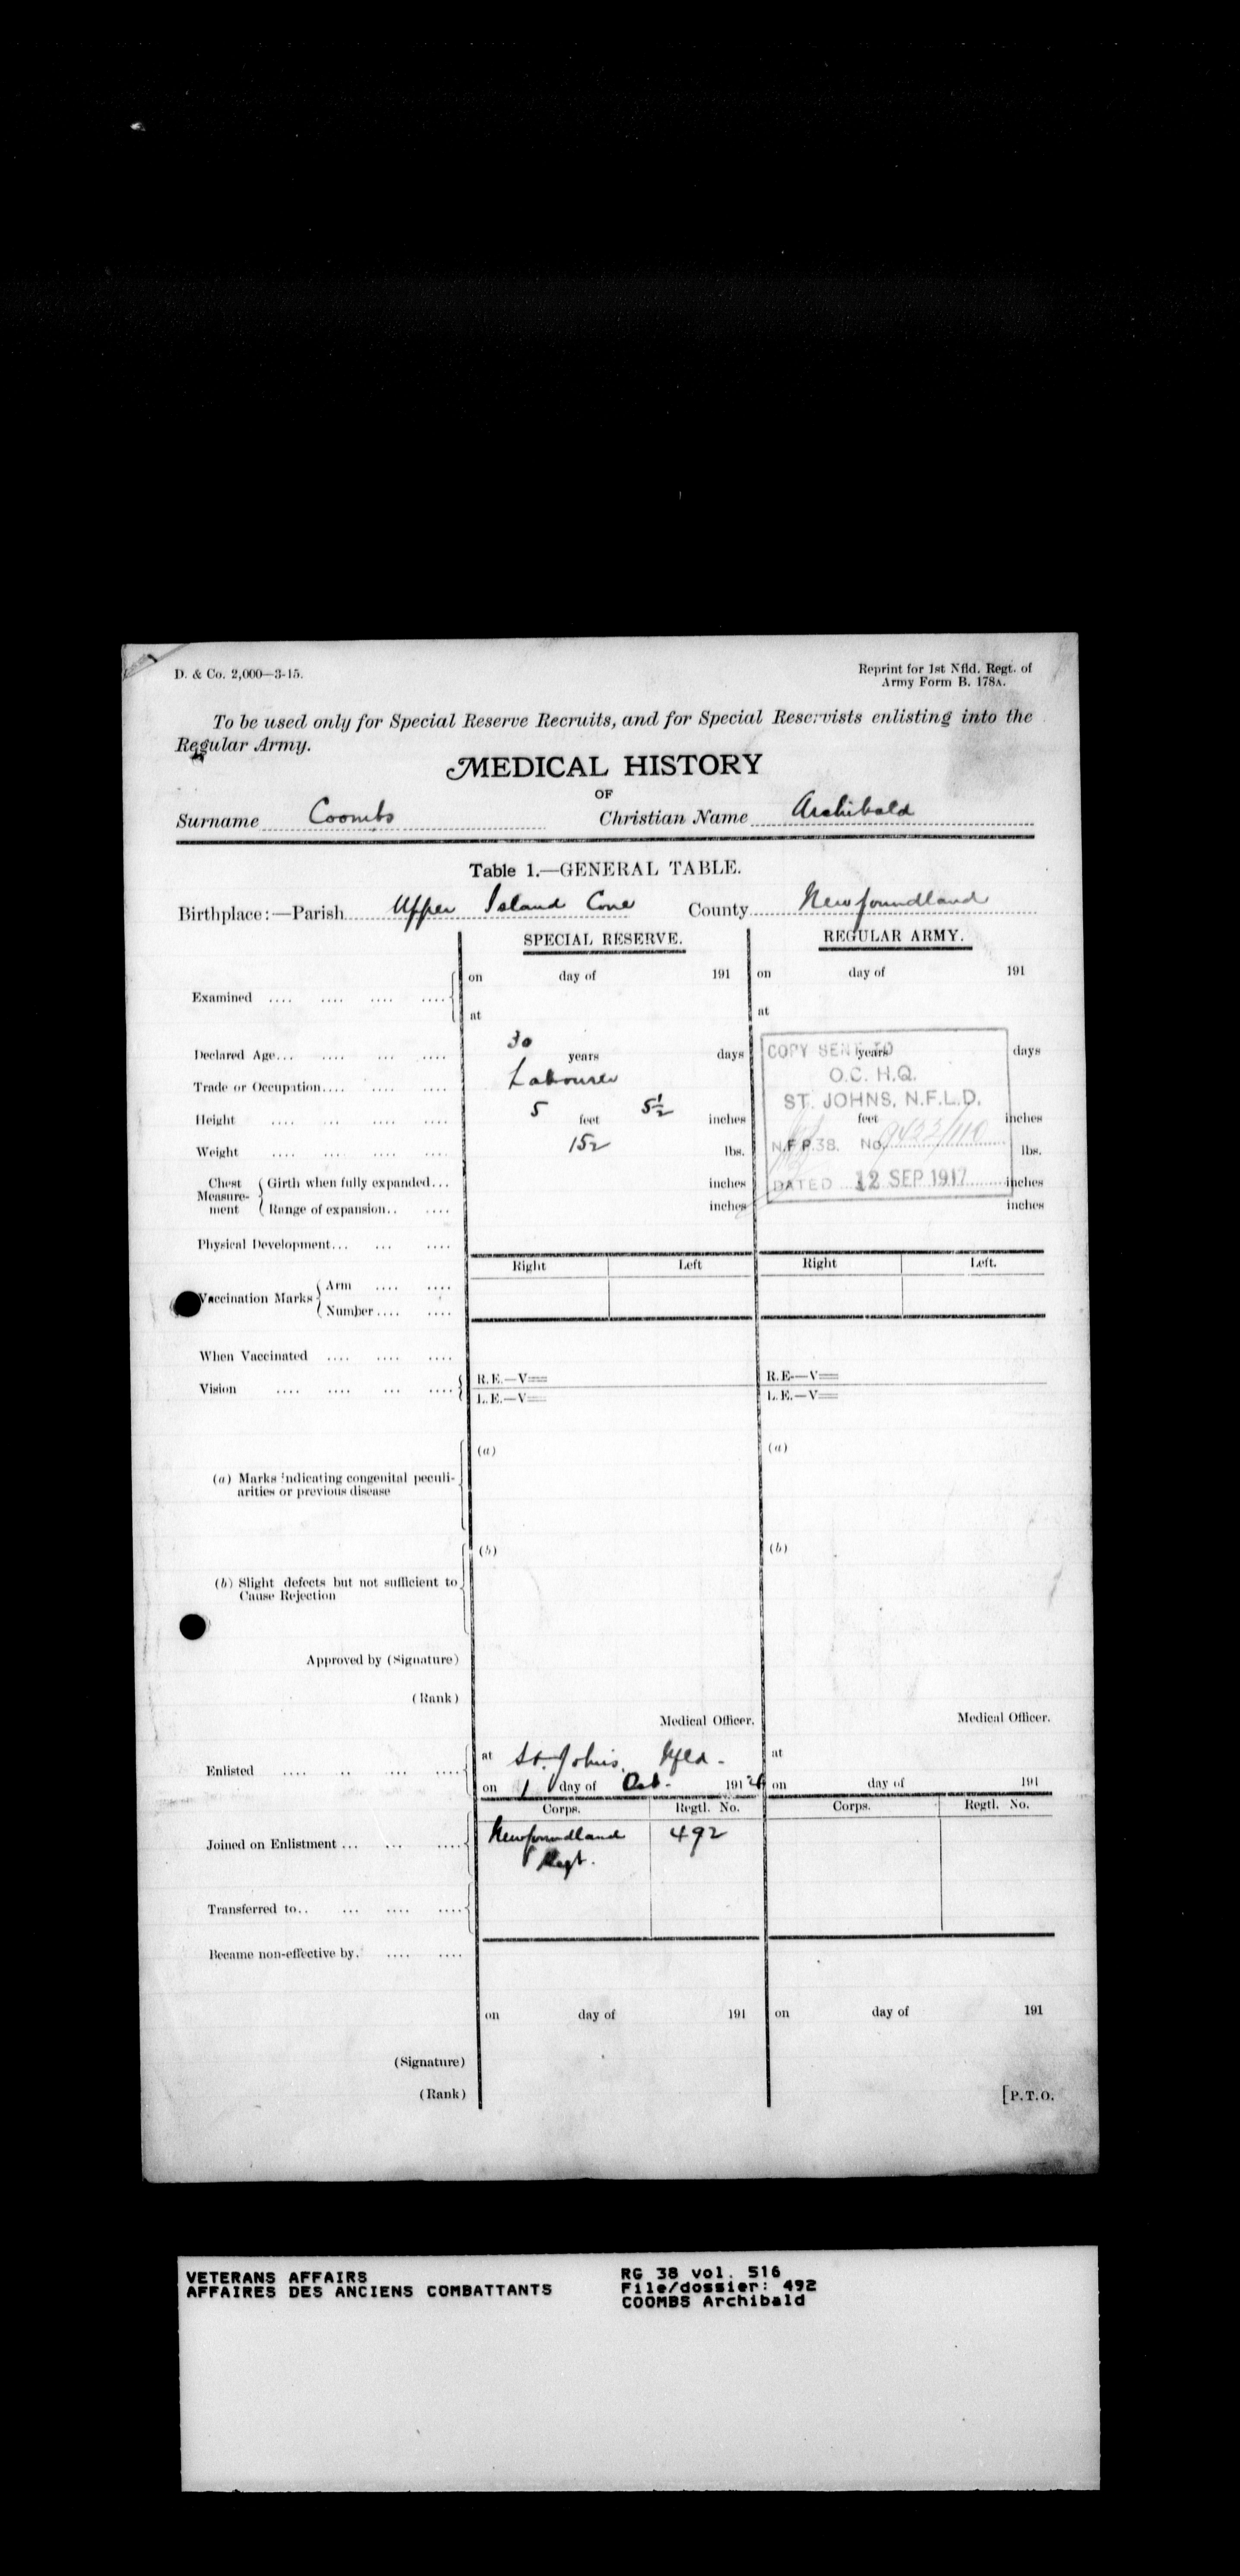 D. & Co. 2,000—3-15.
Reprint for 1st Nfld. Regt. of
Army Form B. 178A.
To be used only for Special Reserve Recruits, and for Special Reservists enlisting into the
Regular Army.
MEDICAL HISTORY
OF
Surname Coombs Christian Name Archibald
Table 1.—GENERAL TABLE.
Birthplace:—Parish Upper Island Cove County Newfoundland
SPECIAL RESERVE. REGULAR ARMY.
Examined .... .... .... ....
on day of 191 on day of 191
at at
Declared Age... .... ... .... 30 years days years days
Trade or Occupation.... .... .... Labourer
Height .... .... .... .... 5 feet 5½ inches feet inches
Weight .... .... .... .... 152 lbs. lbs.
COPY SENT TO
O.C. H.Q.
ST. JOHNS, N.F.L.D.
N.F.P.38. No.
DATED 12 SEP 1917
Chest Measure-ment
Girth when fully expanded... inches inches
Range of expansion.. .... inches inches
Physical Development... ... ....
Right Left Right Left.
Vaccination Marks
Arm .... ....
Number.... ....
When Vaccinated .... .... ....
Vision .... .... ... ....
R.E.—V= R.E—V=
L.E.—V= L.E.—V=
(a) (a)
(a) Marks indicating congenital peculi-
arities or previous disease
(b) (b)
(b) Slight defects but not sufficient to
Cause Rejection
Approved by (Signature)
(Rank)
Medical Officer. Medical Officer.
Enlisted .... .. ... ....
at St. Johns, Nfld. at
on 1 day of Oct. 191 on day of 191
Corps. Regtl. No. Corps. Regtl. No.
Joined on Enlistment ... ... .... Newfoundland 492
Regt.
Transferred to.. ... .... ....
Became non-effective by. .... ....
on day of 191 on day of 191
(Signature)
(Rank)
[P.T.O.
VETERANS AFFAIRS
AFFAIRES DES ANCIENS COMBATTANTS
RG 38 vol. 516
File/dossier: 492
COOMBS Archibald